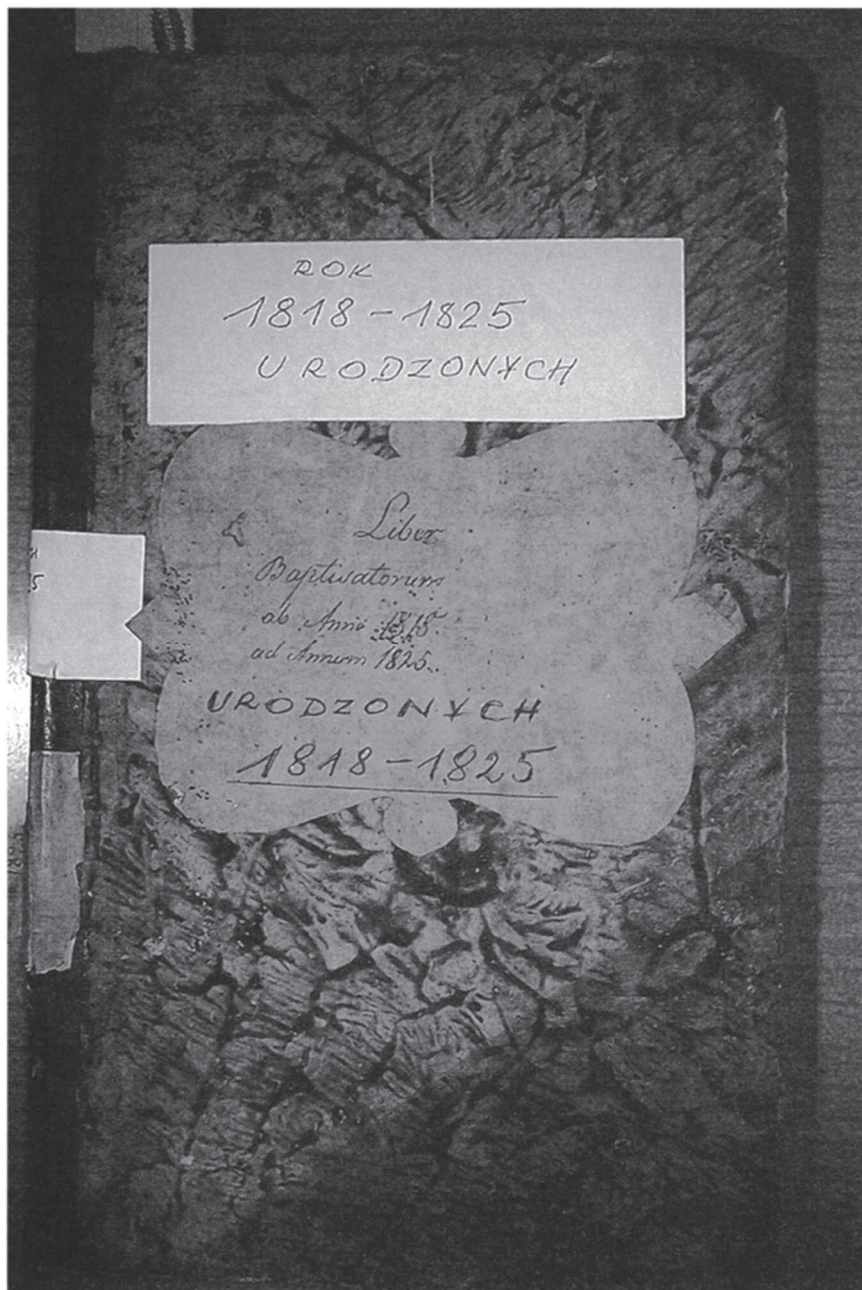 ROK
1818-1825
URODZONYCH
Liber
Baptisatorum
ab Anno 1818.
ad Annum 1825.
URODZONYCH
1818-1825
5